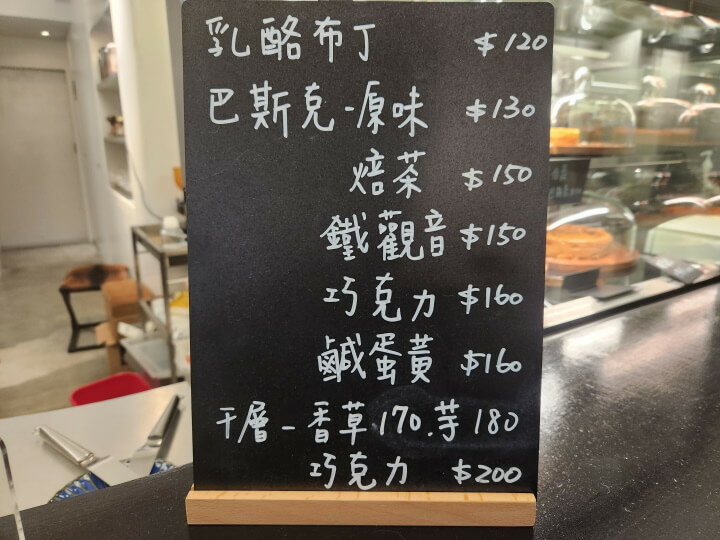 乳酪布丁 $120
巴斯克-原味 $130
焙茶 $150
鐵觀音 $150
巧克力 $160
鹹蛋黃 $160
千層-香草170.芋180
巧克力 $200